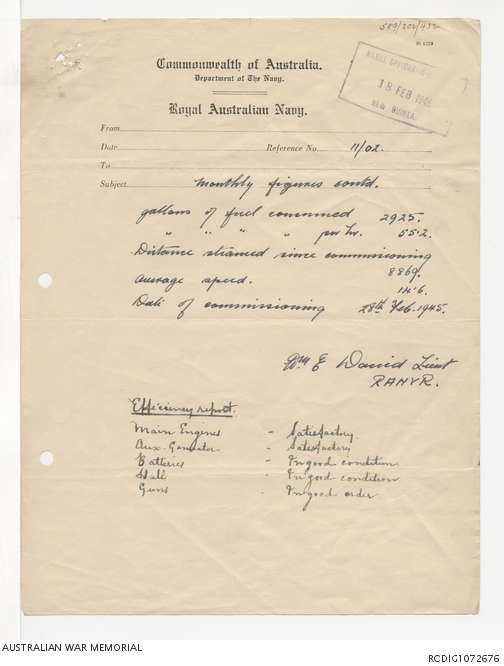 589/202/432
Commonwealth of Australia.
Department of The Navy.
Royal Australian Navy.
18 FEB 1946
NEW GUINEA
From
Date Reference No. 11/02.
To
Subject Monthly figures contd.
gallons of fuel consumed 2925.
" " " " per hr. 55.2.
Distance steamed since commissioning
8869.
average speed. 14.6.
Date of commissioning 28th Feb. 1945.
Wm E David Lieut
RANVR.
Efficiency report.
Main Engines - Satisfactory.
Aux. Generator - Satisfactory
Batteries - In good condition
Hull - In good condition
Guns - In good order
AUSTRALIAN WAR MEMORIAL
RCDIG1072676